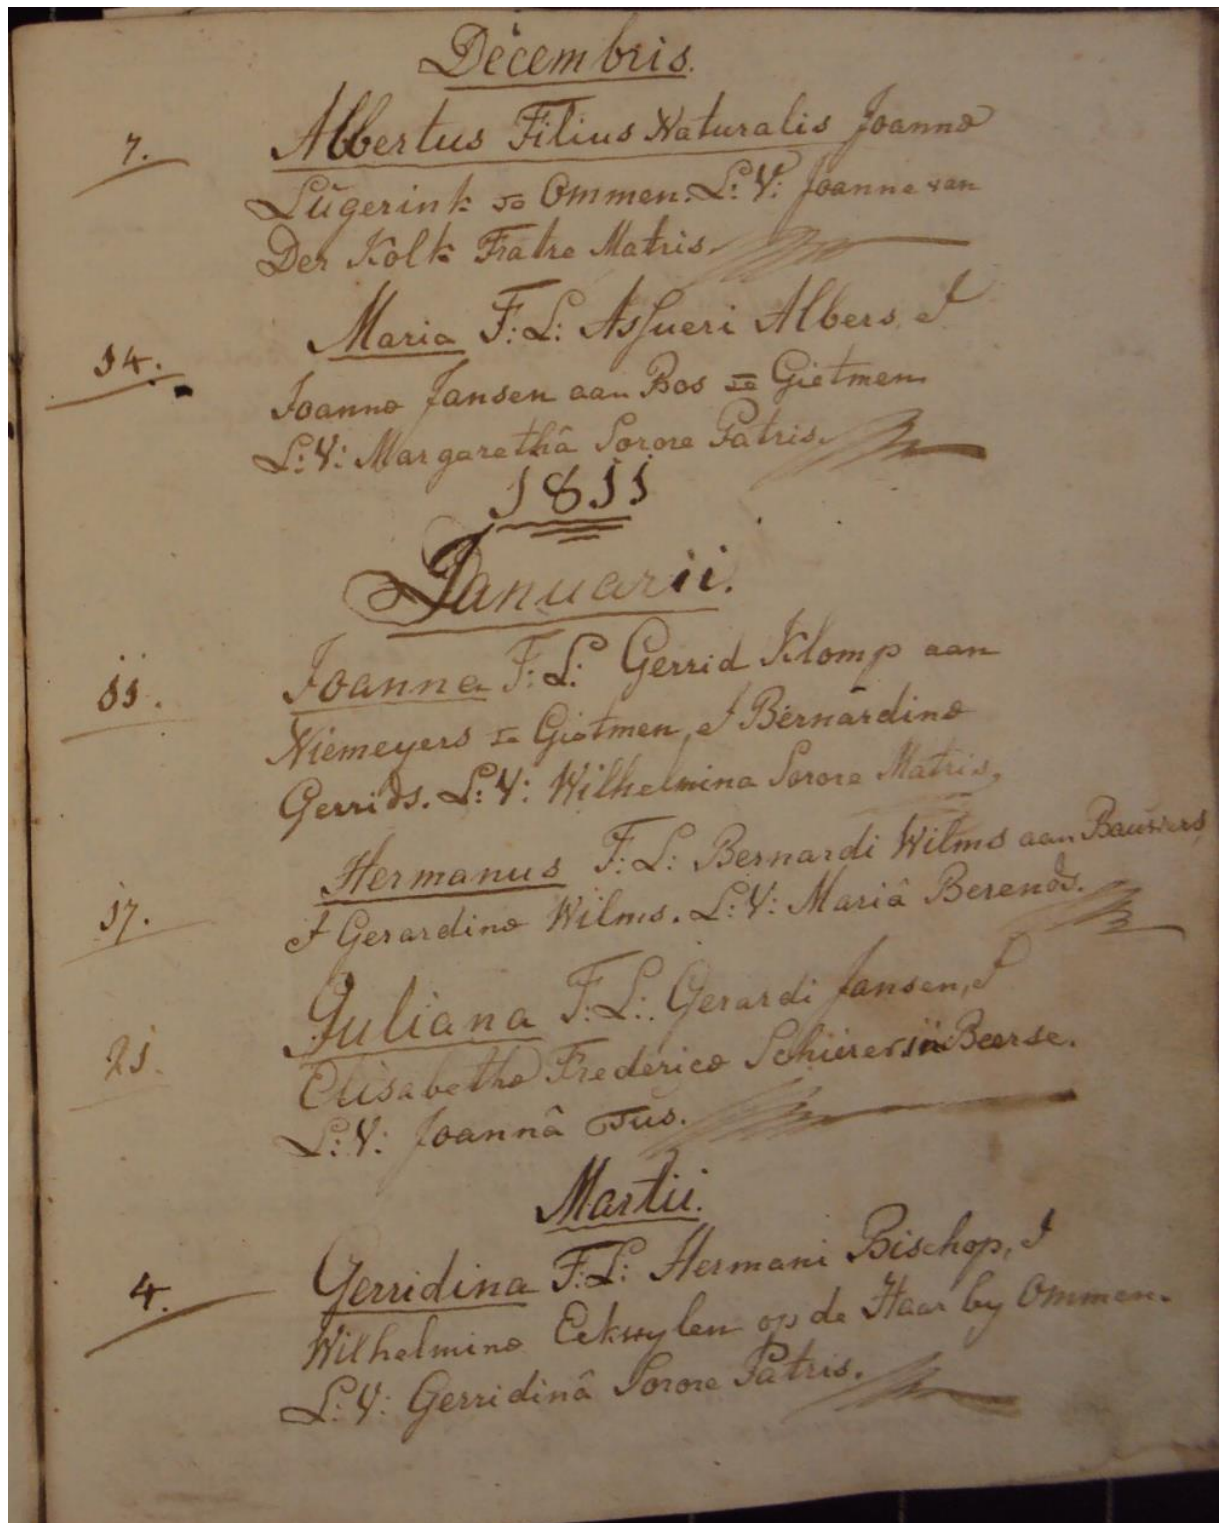 Decembris.
7. Albertus Filius Naturalis Joannæ
Lŭgerink Ommen. L: V: Joanne van
Der Kolk Fratre Matris.
Maria F: L: Assueri Albers, &
14. Joannæ Jansen aan Bos Gietmen
L: V: Margarethâ Sorore Patris.
1811
Januarii.
Joanna F: L: Gerrid Klomp aan
11. Niemeyers Gietmen, & Bernardinæ
Gerrids. L: V: Wilhelmina Sorore Matris.
Hermanus F: L: Bernardi Wilms aan
17. & Gerardinæ Wilms. L: V: Mariâ Berends.
Juliana F: L: Gerardi Jansen, &
21. Elisabethæ Fredericæ Beerse.
L: V: Joannâ Tŭs.
Martii.
Gerridina F: L: Hermani Bischop, &
4. Wilhelminæ op de Haar by Ommen.
L: V: Gerridinâ Sorore Patris.